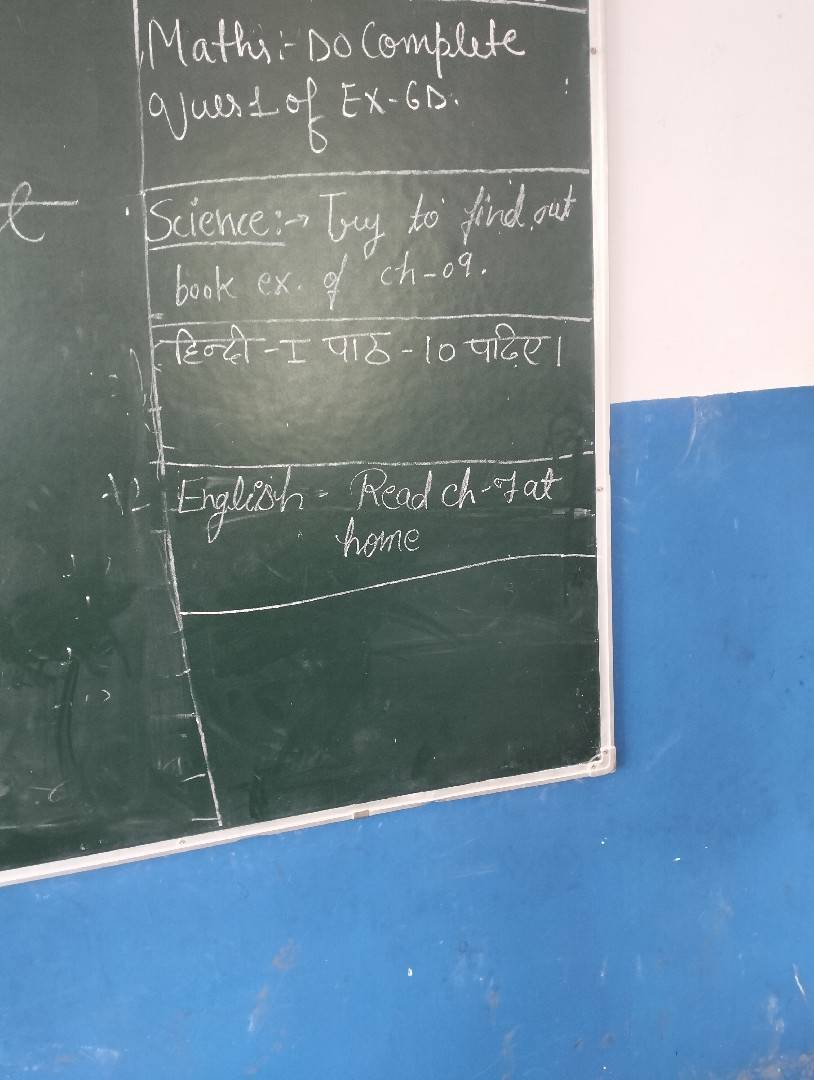 Maths:- DO Complete
Ques 1 of EX-6D.
Science:→ Try to find out
book ex. of ch-09.
हिन्दी -I पाठ -10 पढ़िए।
English - Read ch-7 at
home